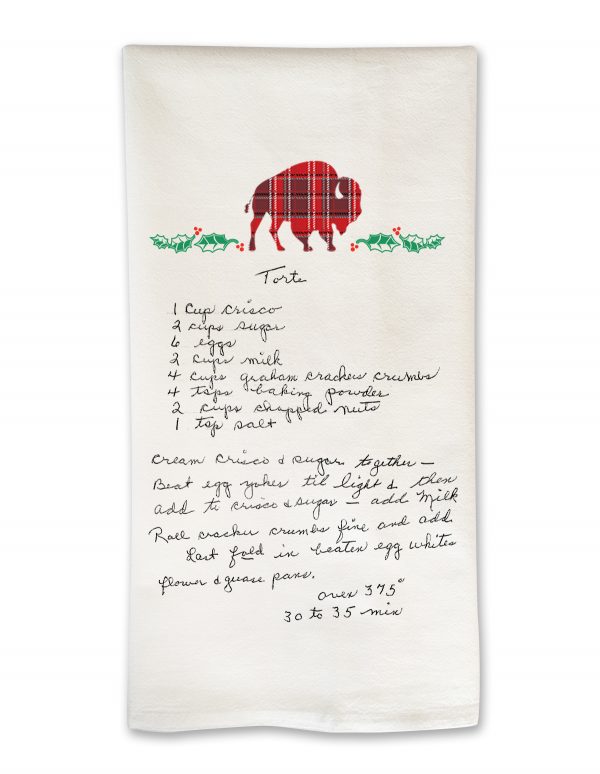 Torte
1 cup crisco
2 cups sugar
6 eggs
2 cups milk
4 cups graham crackers crumbs
4 tsps baking powder
2 cups chopped nuts
1 tsp salt
cream crisco & sugar together —
Beat egg yokes til light & then
add to crisco & sugar — add Milk
Roll cracker crumbs fine and add.
Last fold in beaten egg whites
flower & guase pans.
oven 375°
30 to 35 min